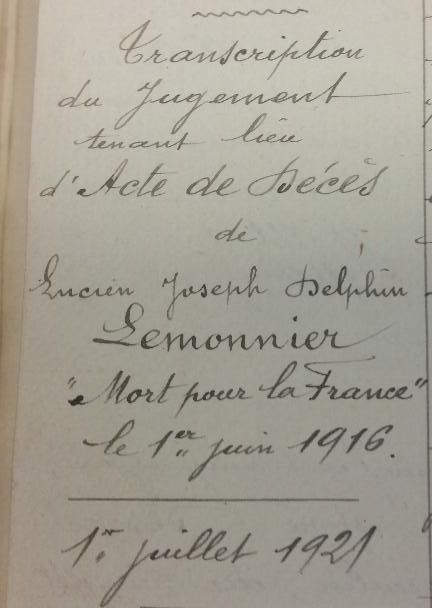 Transcription
du Jugement
tenant lieu
d'Acte de Décès
de
Lucien Joseph Delphin
Lemonnier
"Mort pour la France"
le 1er juin 1916.
1er juillet 1921